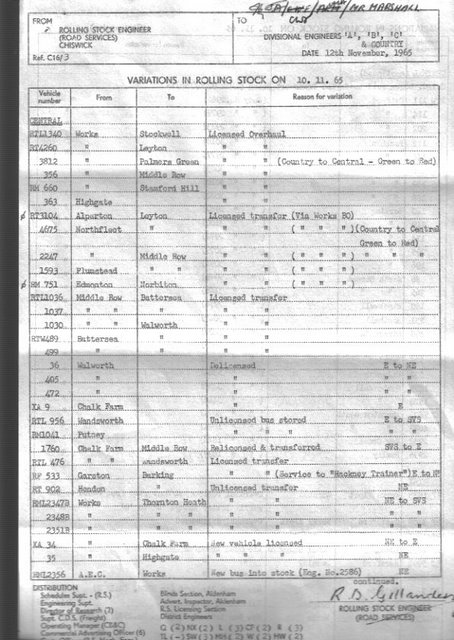 MR MARSHALL
FROM
ROLLING STOCK ENGINEER
(ROAD SERVICES)
CHISWICK
Ref. C16/3
TO
DIVISIONAL ENGINEERS 'A', 'B', 'C'
& COUNTRY
DATE 12th November, 1965
VARIATIONS IN ROLLING STOCK ON 10.11.65
Vehicle number From To Reason for variation
CENTRAL
RTL1340 Works Stockwell Licensed Overhaul
RT4260 " Leyton " "
3812 " Palmers Green " " (Country to Central - Green to Red)
356 " Middle Row " "
RM 660 " Stamford Hill " "
363 Highgate " " "
RT3104 Alperton Leyton Licensed transfer (Via Works BO)
4675 Northfleet " " " ( " " " )(Country to Central
Green to Red)
2247 " Middle Row " " ( " " " ) " " "
1593 Plumstead " " " " ( " " " )
RM 751 Edmonton Norbiton " " ( " " " )
RTL1036 Middle Row Battersea Licensed transfer
1037 " " " " "
1030 " " Walworth " "
RTW489 Battersea " " "
499 " " " "
36 Walworth Delicensed E to NE
405 " " " "
472 " " " "
XA 9 Chalk Farm " E
RTL 956 Wandsworth Unlicensed bus stored E to SVS
RM1041 Putney " " " " "
1760 Chalk Farm Middle Row Relicensed & transferred SVS to E
RTL 476 " " Wandsworth Licensed transfer
RF 533 Garston Barking " " (Service to "Hackney Trainer")E to NE
RT 902 Hendon " Unlicensed transfer NE
RML2347B Works Thornton Heath " " NE to SVS
2348B " " " " "
2351B " " " " "
XA 34 Chalk Farm New vehicle licensed NE to E
35 Highgate " " " NE
RML2356 A.E.C. Works New bus into stock (Eng. No.2586) NE
continued.
DISTRIBUTION
Schedules Supt. - (R.S.)
Engineering Supt.
Director of Research (2)
Supt. C.D.S. (Freight)
Operating Manager (CB&C)
Commercial Advertising Officer (6)
Blinds Section, Aldenham
Advert. Inspector, Aldenham
R.S. Licensing Section
District Engineers
R.D. Gillanders
ROLLING STOCK ENGINEER
(ROAD SERVICES)